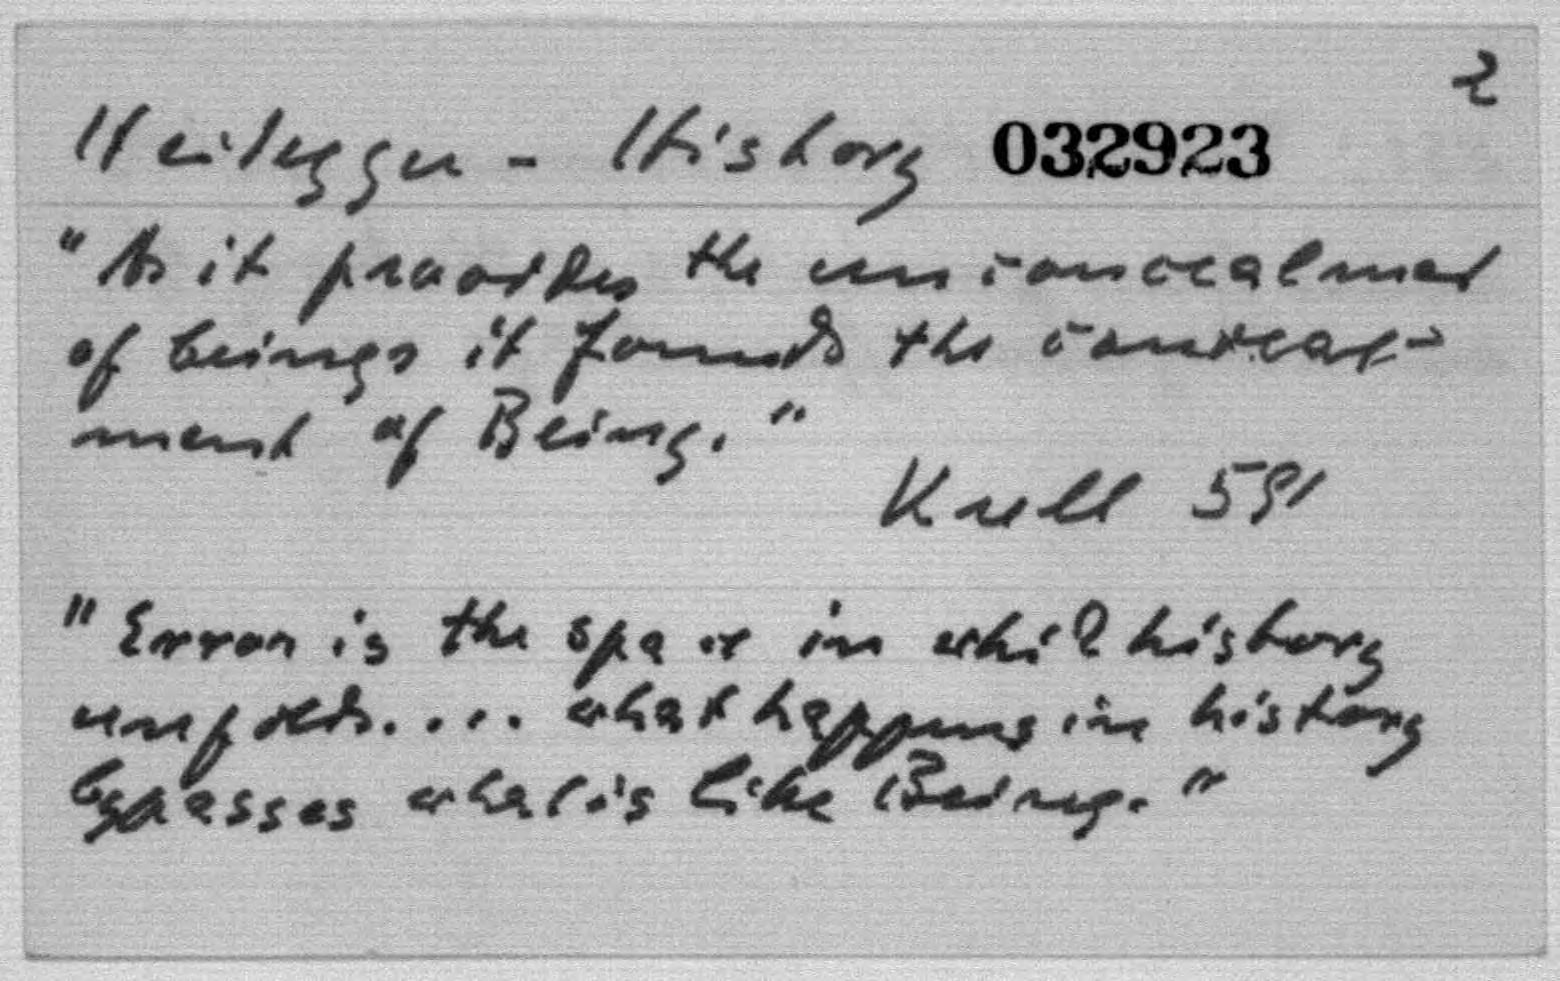 2
Heidegger - History 032923
"As it provides the unconcealment
of beings it founds the conceal-
ment of Being."
Krell 591
"Error is the space in which history
unfolds.... what happens in history
bypasses what is like Being."